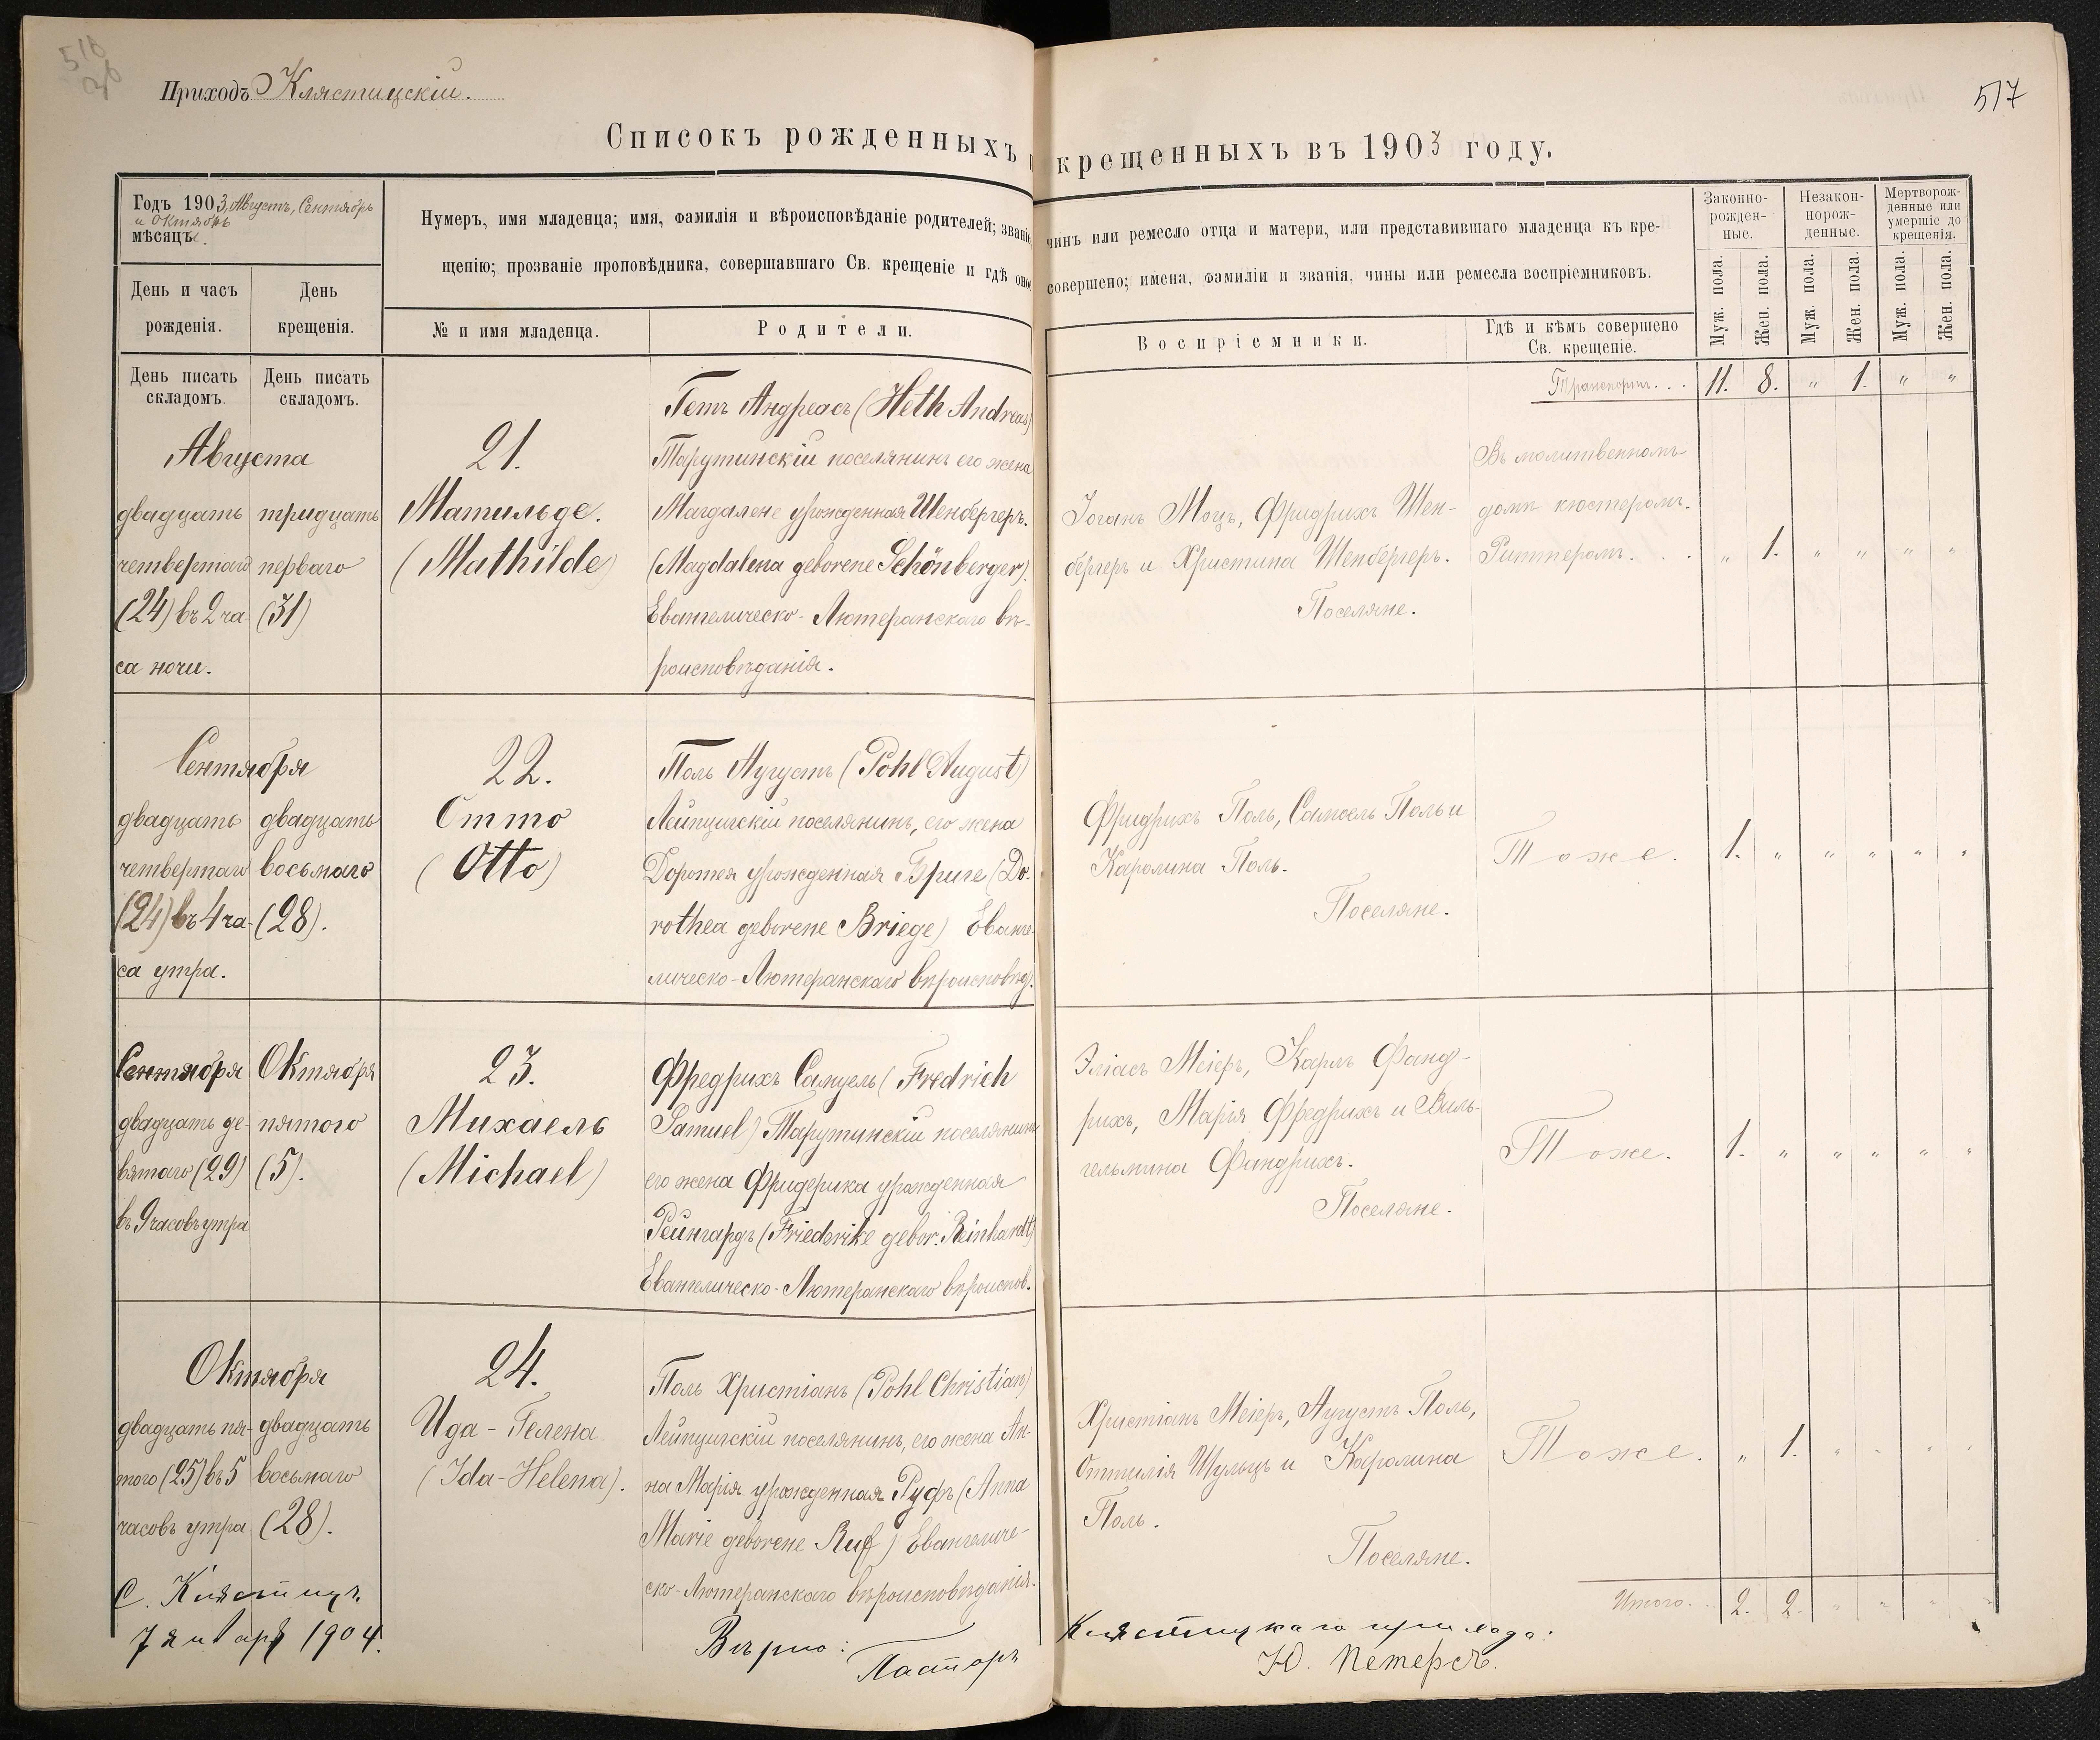 516
об
Приходъ Клястицскій.
517
Списокъ рожденныхъ крещенныхъ въ 1903 году.
Годъ 1903, Августъ, Сентябрь
и Октябрь
мѣсяцъ.
День и часъ
рожденія.
День
крещенія.
Нумеръ, имя младенца; имя, фамилія и вѣроисповѣданіе родителей; званіе,
щенію; прозваніе проповѣдника, совершавшаго Св. крещеніе и гдѣ оное
№ и имя младенца.
Родители.
чинъ или ремесло отца и матери, или представившаго младенца къ кре-
совершено; имена, фамиліи и званія, чины или ремесла воспріемниковъ.
Воспріемники.
Гдѣ и кѣмъ совершено
Св. крещеніе.
Законно-
рожден-
ные.
Незакон-
норож-
денные.
Мертворож-
денные или
умершіе до
крещенія.
Муж. пола.
Жен. пола.
Муж. пола.
Жен. пола.
Муж. пола.
Жен. пола.
День писать
складомъ.
День писать
складомъ.
Транспортъ... 11. 8. " 1. " "
Августа
двадцать
четвертаго
(24) въ 2 ча-
са ночи.
тридцать
перваго
(31)
21.
Матильде.
(Mathilde)
Гетъ Андреасъ (Heth Andreas)
Тарутинскій поселянинъ его жена
Магдалене урожденная Шенбергеръ.
(Magdalena geborene Schönberger).
Евангелическо-Лютеранскаго вѣ-
роисповѣданія.
Іоганъ Моцъ, Фридрихъ Шен-
бергеръ и Христина Шенбергеръ.
Поселяне.
Въ молитвенномъ
домѣ кюстеромъ.
Риттеромъ. . .
" 1. " " " "
Сентября
двадцать
четвертаго
(24) въ 4 ча-
са утра.
двадцать
восьмаго
(28).
22.
Отто
(Otto)
Поль Аугустъ (Pohl August)
Лейпцигскій поселянинъ, его жена
Доротея урожденная Бриге (Do-
rothea geborene Briege) Еванге-
лическо-Лютеранскаго вѣроисповѣд.
Фридрихъ Поль, Самоель Поль и
Каролина Поль.
Поселяне.
Тоже.
1. " " " " "
Сентября
двадцать де-
вятаго (29)
въ 9 часовъ утра
Октября
пятого
(5).
23.
Михаель
(Michael)
Фредрихъ Самуель (Fredrich
Samuel) Тарутинскій поселянинъ
его жена Фридерика урожденная
Рейнгардъ (Friederike gebor. Reinhardt)
Евангелическо-Лютеранскаго вѣроиспов.
Эліасъ Меіеръ, Карлъ Фанд-
рихъ, Марія Фредрихъ и Виль-
гельмина Фандрихъ.
Поселяне.
Тоже.
1. " " " " "
Октября
двадцать пя-
того (25) въ 5
часовъ утра
двадцать
восьмаго
(28).
24.
Ида-Гелена
(Ida-Helena).
Поль Христіанъ (Pohl Christian)
Лейпцигскій поселянинъ, его жена Ан-
на Марія урожденная Руфъ (Anna
Marie geborene Ruf) Евангеличе-
ско-Лютеранскаго вѣроисповѣданія.
Христіанъ Меіеръ, Аугустъ Поль,
Оттилія Шульцъ и Каролина
Поль.
Поселяне.
Тоже.
" 1. " " " "
Итого... 2. 2. " " " "
С. Клястицъ.
7 января 1904.
Вѣрно: Пасторъ Клястицкаго прихода:
Ю. Петерсъ.